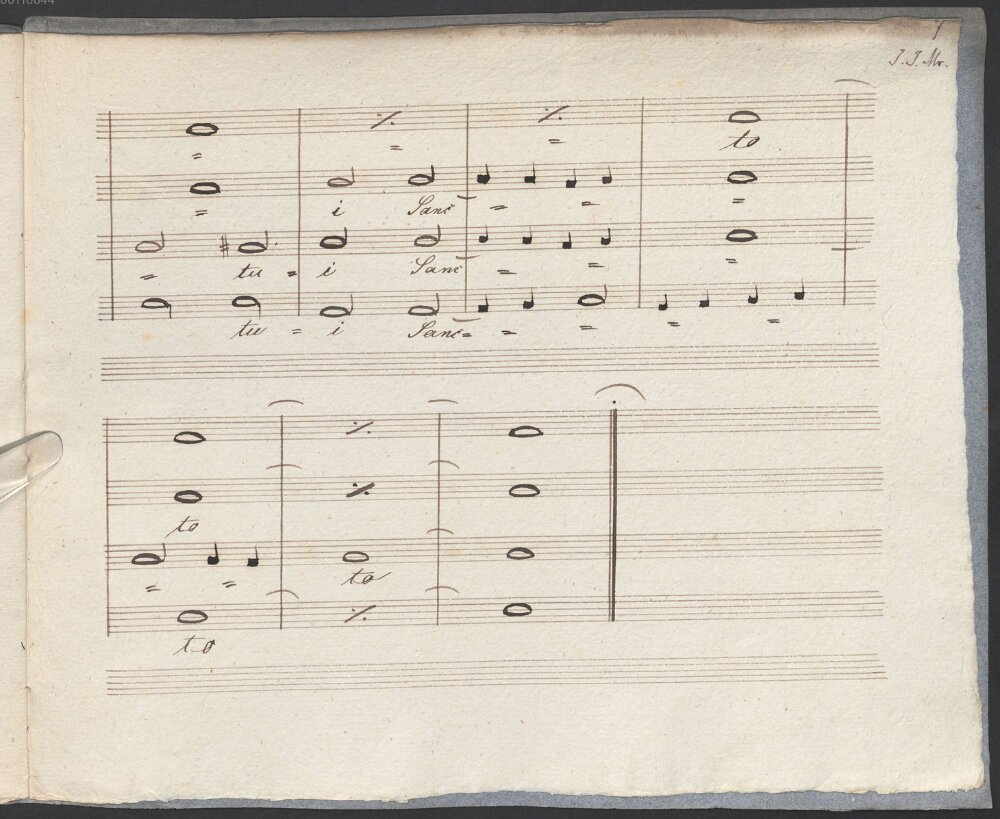 7
J. J. Mr.
to
i Sanc
tu = i Sanc
tu = i Sanc=
to
to
to